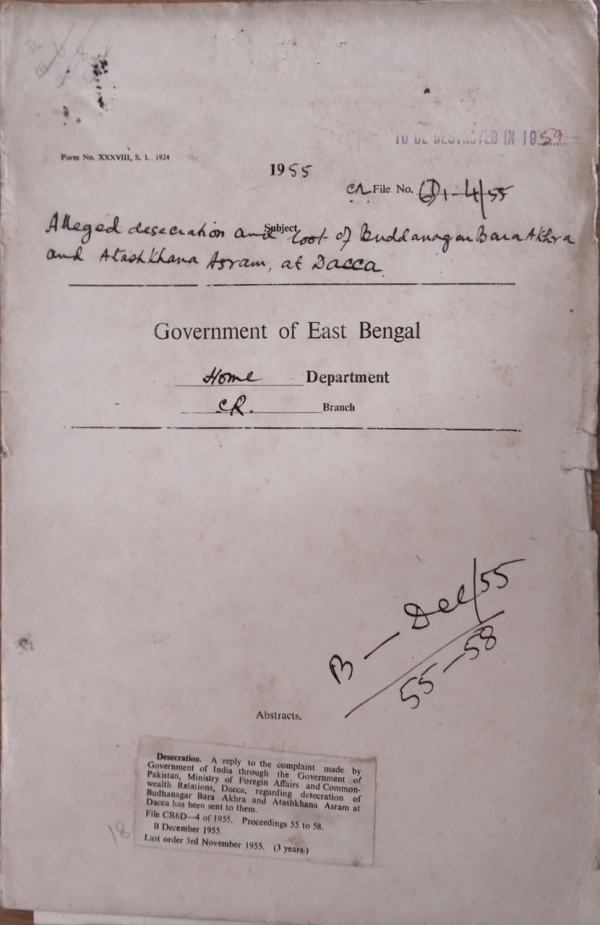 TO BE DESTROYED IN 1959
Form No. XXXVIII, S. I. 1924
1955
CR File No. 6D1-4/55
Subject
Alleged desecration and loot of Buddanagar Bara Akhra
and Atashkhana Asram, at Dacca
Government of East Bengal
Home Department
CR. Branch
B — Dec/55
55-58
Abstracts.
Desecration. A reply to the complaint made by
Government of India through the Government of
Pakistan, Ministry of Foregin Affairs and Common-
wealth Relations, Dacca, regarding desecration of
Budhanagar Bara Akhra and Atashkhana Asram at
Dacca has been sent to them.
File CR6D—4 of 1955. Proceedings 55 to 58.
B December 1955.
Last order 3rd November 1955. (3 years.)
18